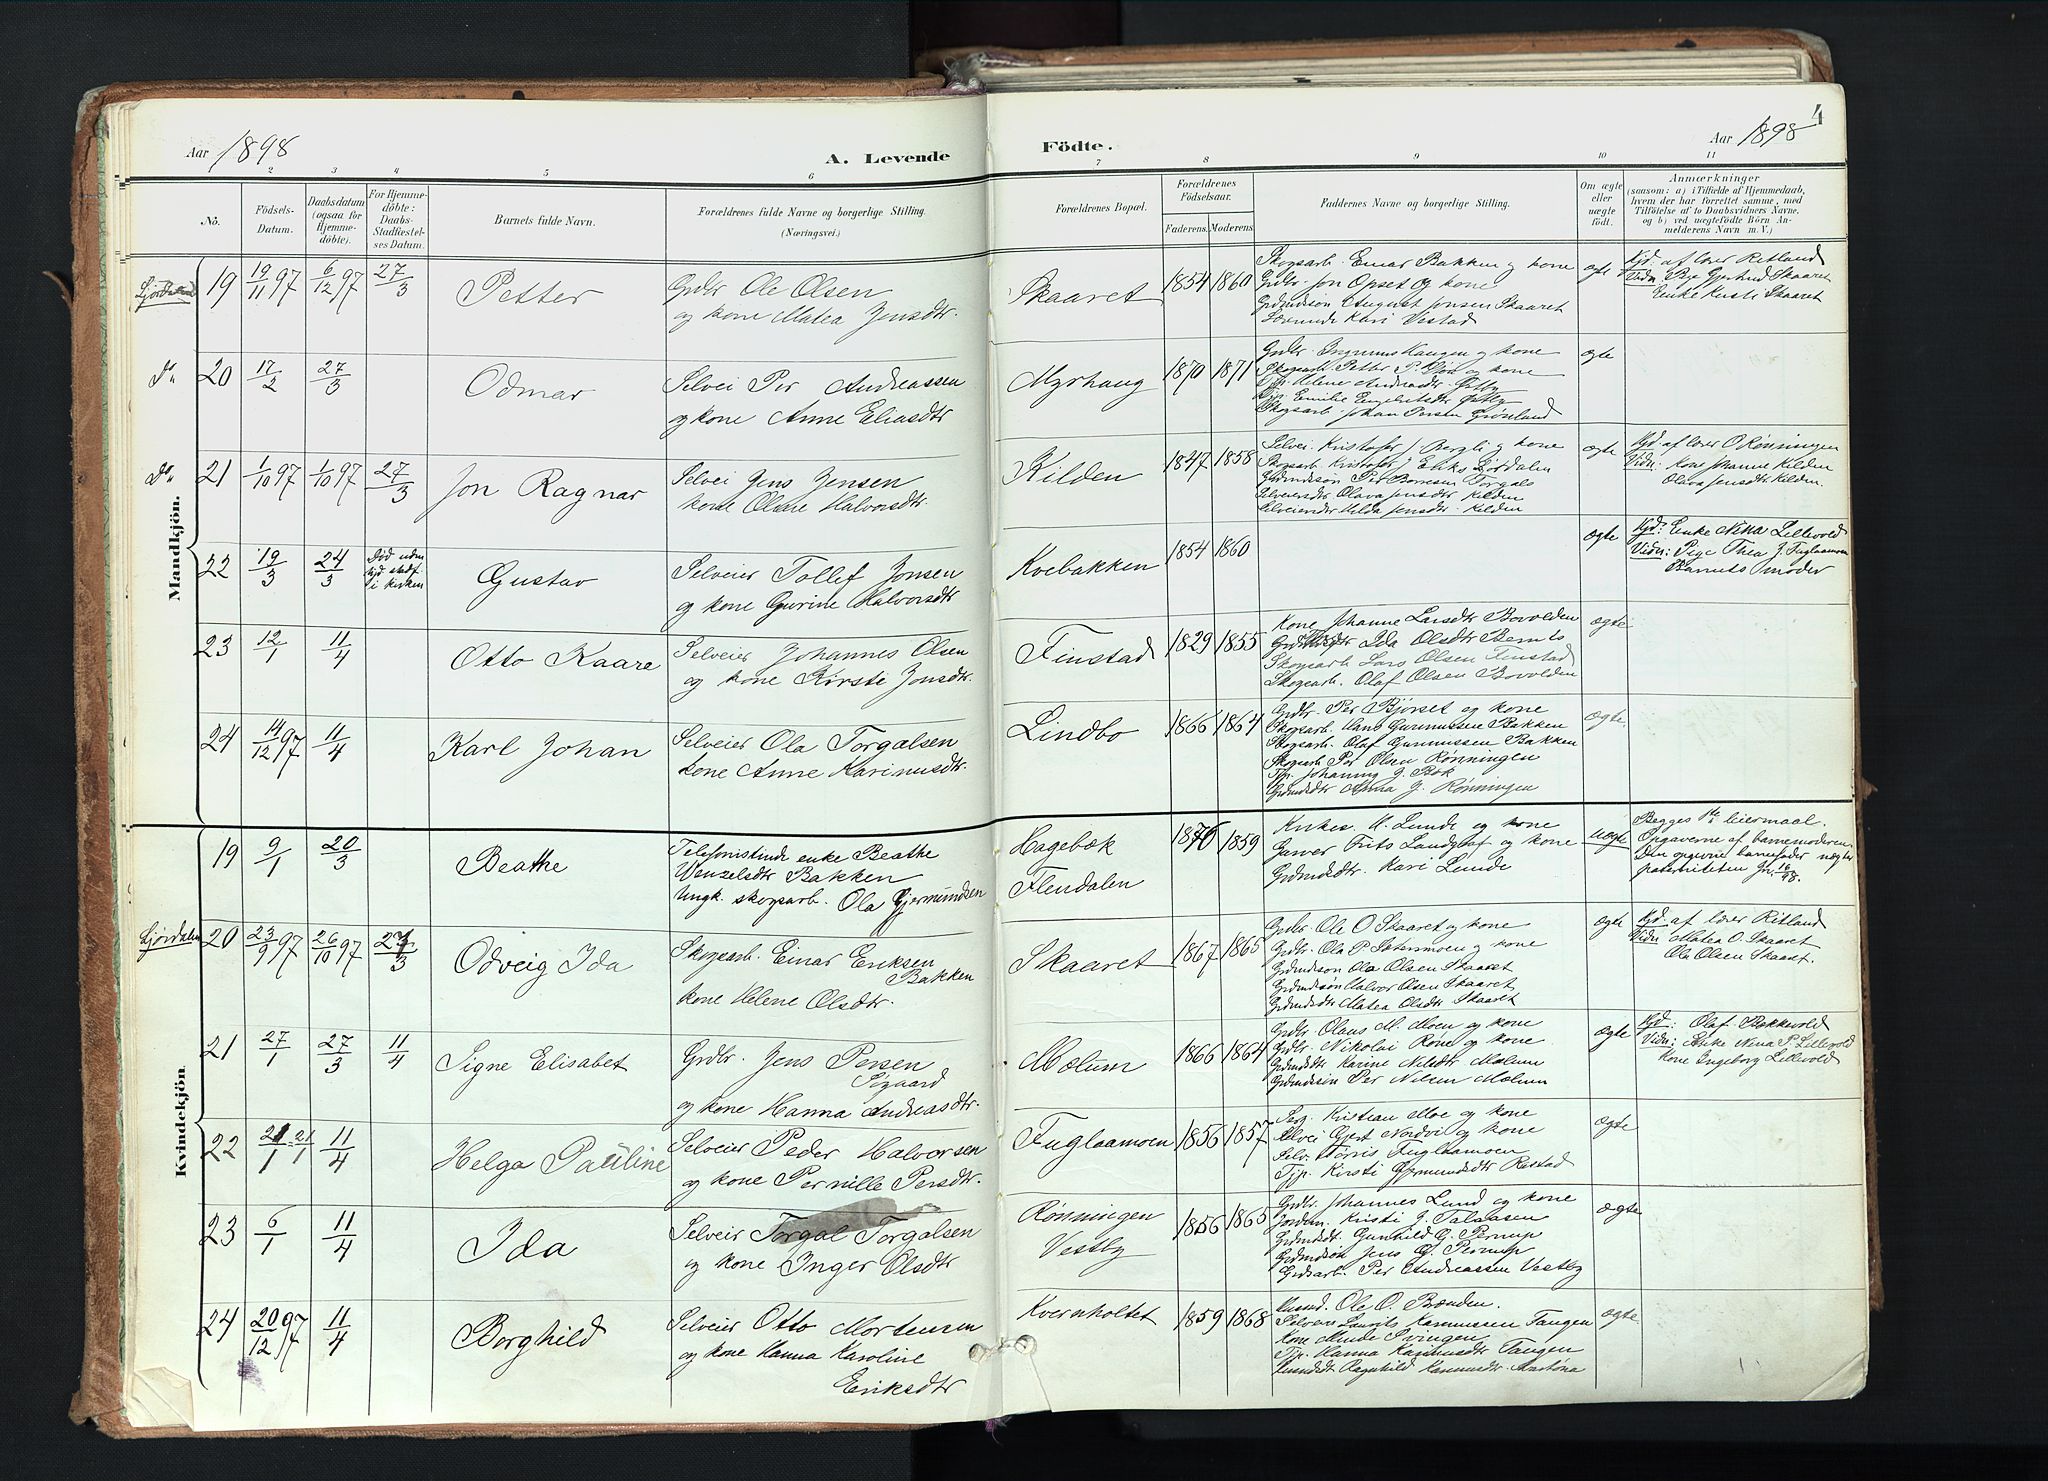 Aar 1898
A. Levende
Födte.
Aar 1898
4
2 3 4 5 6 7 8 9 10 11
No.
Födsels-Datum.
Daabsdatum (ogsaa for Hjemme-döbte).
For Hjemme-döbte: Daabs-Stadfæstel-ses Datum.
Barnets fulde Navn.
Forældrenes fulde Navne og borgerlige Stilling.
(Næringsvei.)
Forældrenes Bopæl.
Forældrenes Födselsaar.
Faderens. Moderens.
Faddernes Navne og borgerlige Stilling.
Om ægte eller uægte födt.
Anmærkninger
(saasom: a) i Tilfælde af Hjemmedaab, hvem der har forrettet samme, med Tilföielse af to Daabsvidners Navne, og b) ved uægtefödte Börn An-melderens Navn m. V.)
Mandkjön.
Ljørdalen 19 19/11 97 6/12 97 27/3 Petter
Grdbr. Ole Olsen
og kone Matea Jensdtr.
Skaaret 1854 1860
Skogsarb. Einar Bakken og kone
Grdbr. Jon Opset og kone
Grdmdsøn August Jensen Skaaret
Lærerinde Kari Vestad
ægte
Hjd. af lærer Ritland
Vidn: Pige Gjertrud Skaaret
Enke Kirsti Skaaret
Do. 20 17/2 27/3 Odmar
Selvei Per Andreassen
og kone Anne Eliasdtr
Myrhaug 1870 1871
Grdbr. Ingvarus Haugen og kone
Skogsarb. Petter P. Kjøs og kone
Tjp. Helene Andreasdtr. Østby
Tjp. Emilie Engebretsdtr Østby
Skogsarb. Johan Persen Grønland
ægte
Do. 21 1/10 97 1/10 97 27/3 Jon Ragnar
Selvei Jens Jensen
kone Oline Halvorsdtr.
Kilden 1847 1858
Selvei. Kristofer J Bergli og kone
Skogsarb. Kristofer J Eriks Ljørdalen
Grdmdsøn Per Borresen Torgals
Selveiersdtr Olava Jensdtr. Kilden
Selveiersdtr Hilda Jensdtr. Kilden
ægte
Hjd. af lærer O Rønningen
Vidn: Kone Johanne Kilden
Olava Jensdtr Kilden.
22 19/3 24/3 Død uden hjd stadf i kirken Gustav
Selveier Tollef Jonsen
og kone Gurine Halvorsdtr
Kvebakken 1854 1860
ægte
Hjd: Enke Nina Lillevold
Vidn: Pige Thea J. Fuglaamoen
Barnets moder
23 12/1 11/4 Otto Kaare
Selveier Johannes Olsen
og kone Kirsti Jonsdtr.
Finstad 1829 1855
Kone Johanne Larsdtr Bovolden
Grdmdsdtr Ida Olsdtr Bernts
Skogsarb Lars Olsen Finstad
Skogsarb. Olaf Olsen Bovolden
ægte
24 14/12 97 11/4 Karl Johan
Selveier Ola Torgalsen
kone Anne Karinusdtr.
Lindbo 1866 1864
Grdbr. Per Bjørset og kone
Skogsarb. Hans Gunnussen Bakken
Skogsarb. Olaf Gunnussen Bakken
Skogsarb Per Olsen Rønningen
Tjp. Johanna J. Bæk
Grdmdsdtr Anna J. Rønningen
ægte
Kvindekjön.
19 9/1 20/3 Beathe
Telefonistinde enke Beathe
Wenzelsdtr Bakken
Ungk. skogsarb. Ola Gjermundsen
Hagebæk
Flendalen
1876 1859
Kirkes. H. Lunde og kone
Garver Frits Landgraf og kone
Grdmdsdtr. Kari Lunde
uægte
Begges 1ste leiermaal.
Opgaverne af barnemoderen.
Den opgivne barnefader nægter
paterniteten
Ljørdalen 20 23/9 97 26/10 97 27/3 Odveig Ida
Skogsarb. Einar Eriksen
Bakken
kone Helene Olsdtr.
Skaaret 1867 1865
Grdbr. Ole O Skaaret og kone
Grdbr. Ola P Sætersmoen og kone
Grdmdsøn Ola Olsen Skaaret
Grdmdsøn Halvor Olsen Skaaret
Grdmdsdtr Matea Olsdtr Skaaret
ægte
Hjd. af lærer Ritland
Vidn Matea O. Skaaret
Ole Olsen Skaaret.
21 27/1 27/3 11/4 Signe Elisabet
Grdbr. Jens Persen
Sigaard
og kone Hanna Andreasdtr.
Mælum 1866 1864
Grdbr. Olaus M. Moen og kone
Grdbr. Nikolai Røne og kone
Grdmdsdtr Karine Nilsdtr Mælum
Grdmdsøn Per Nilsen Mælum
ægte
Hjd: Olaf Bakkevold
Vidn: Enke Nina P Lillevold
Kone Ingeborg Lillevold
22 21/1 21/1 11/4 Helga Pauline
Selveier Peder Halvorsen
og kone Pernille Persdtr.
Fuglaamoen 1856 1857
Serg. Kristian Moe og kone
Selvei Gjert Nordvi og kone
Selv. Tørris Fuglaamoen
Tjp. Kirsti Gjermundsdtr Restad
ægte
23 6/1 11/4 Ida
Selveir Torgal Torgalsen
og kone Inger Olsdtr
Rønningen
Vestby
1856 1865
Grdbr. Johannes Lund og kone
Jordem. Kristi J. Talaasen
Grdmdsdt. Gunhild G. Pernup
Grdmdsøn Jens G. Pernup
Grdsarb. Per Andreassen Vestby
ægte
24 20/12 97 11/4 Borghild
Selveier Otto Mortensen
og kone Hanna Karoline
Eriksdtr
Kvernholtet 1859 1868
Husmd. Ole O. Brænden.
Selveier Laurits Rasmussen Tangen
Kone Minde Svingen
Tjp. Hanna Rasmusdtr Tangen
Ragnhild Rasmusdtr.
ægte